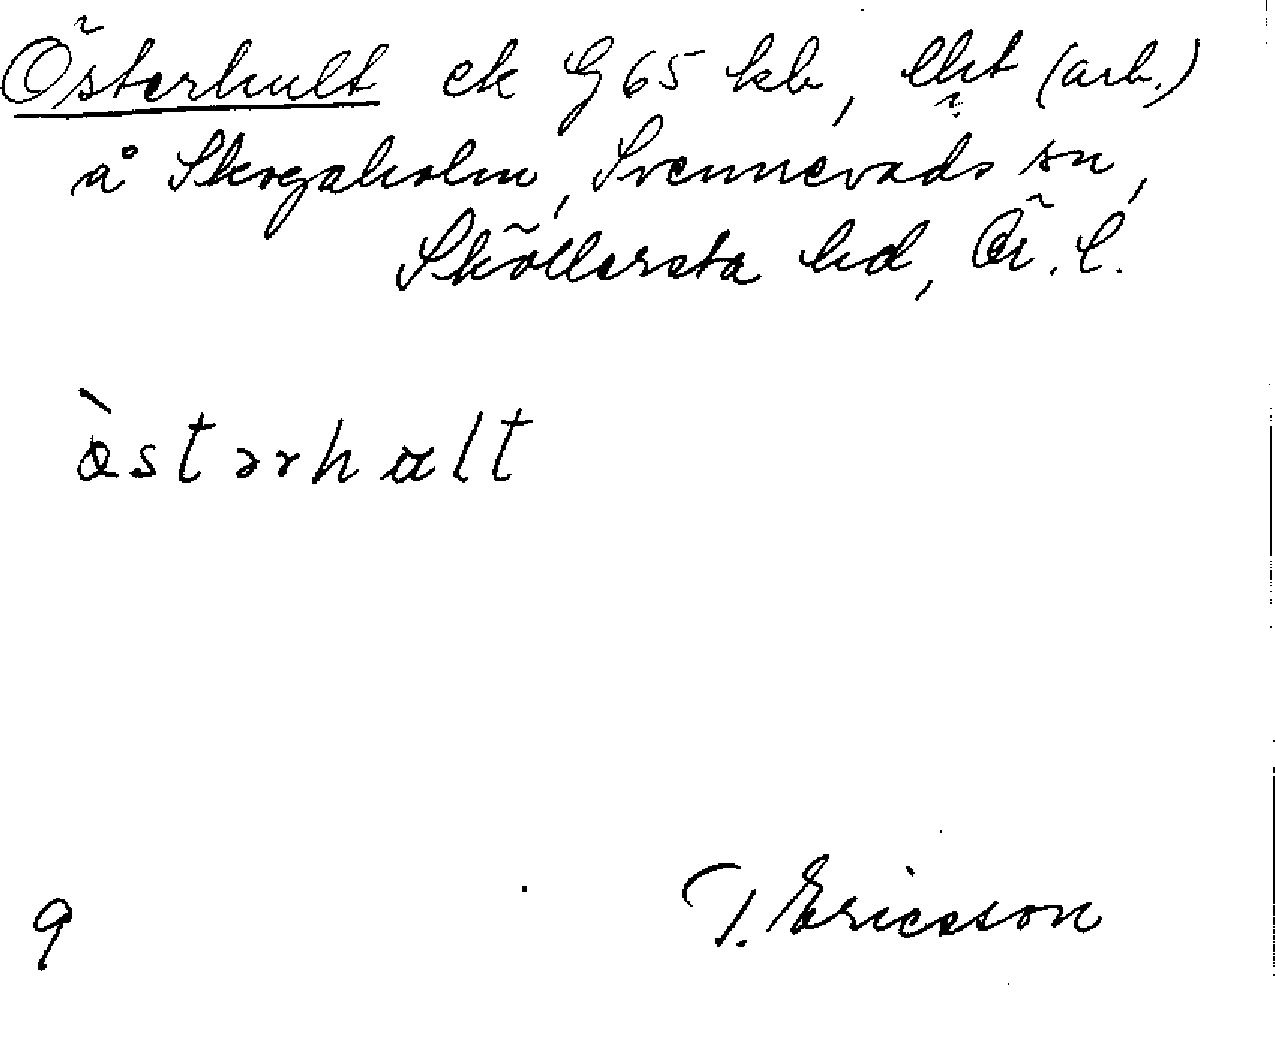 Österhult ek G 65 kb, lht (arb.)
å Skogaholm, Svennevads sn,
Sköllersta hd, Ör. l.
òstərhalt
9
T. Ericsson